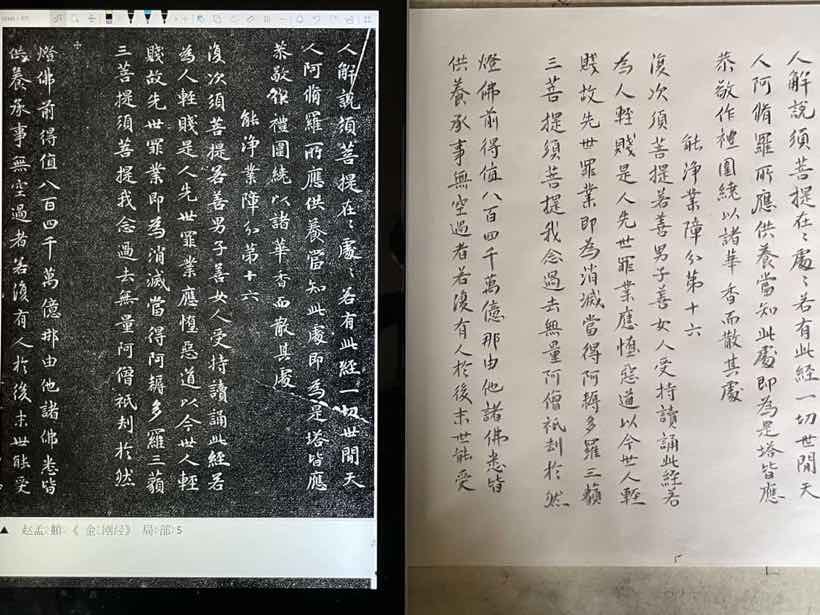 人解說須菩提在〻處〻若有此經一切世間天
人阿脩羅所應供養當知此處即為是塔皆應
恭敬作禮圍繞以諸華香而散其處
能淨業障分第十六
復次須菩提若善男子善女人受持讀誦此經若
為人輕賤是人先世罪業應墮惡道以今世人輕
賤故先世罪業即為消滅當得阿耨多羅三藐
三菩提須菩提我念過去無量阿僧祇刦於然
燈佛前得值八百四千萬億那由他諸佛悉皆
供養承事無空過者若復有人於後末世能受
▲ 赵孟頫《金刚经》局部5
人解說須菩提在〻處〻若有此經一切世間天
人阿脩羅所應供養當知此處即為是塔皆應
恭敬作禮圍繞以諸華香而散其處
能淨業障分第十六
復次須菩提若善男子善女人受持讀誦此經若
為人輕賤是人先世罪業應墮惡道以今世人輕
賤故先世罪業即為消滅當得阿耨多羅三藐
三菩提須菩提我念過去無量阿僧祇刦於然
燈佛前得值八百四千萬億那由他諸佛悉皆
供養承事無空過者若復有人於後末世能受
5